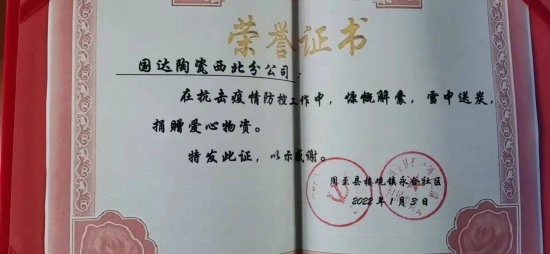 荣誉证书
国达陶瓷西北分公司:
在抗击疫情防控工作中，慷慨解囊，雪中送炭，
捐赠爱心物资。
特发此证，以示感谢。
周至县楼观镇永合社区
2022年1月3日